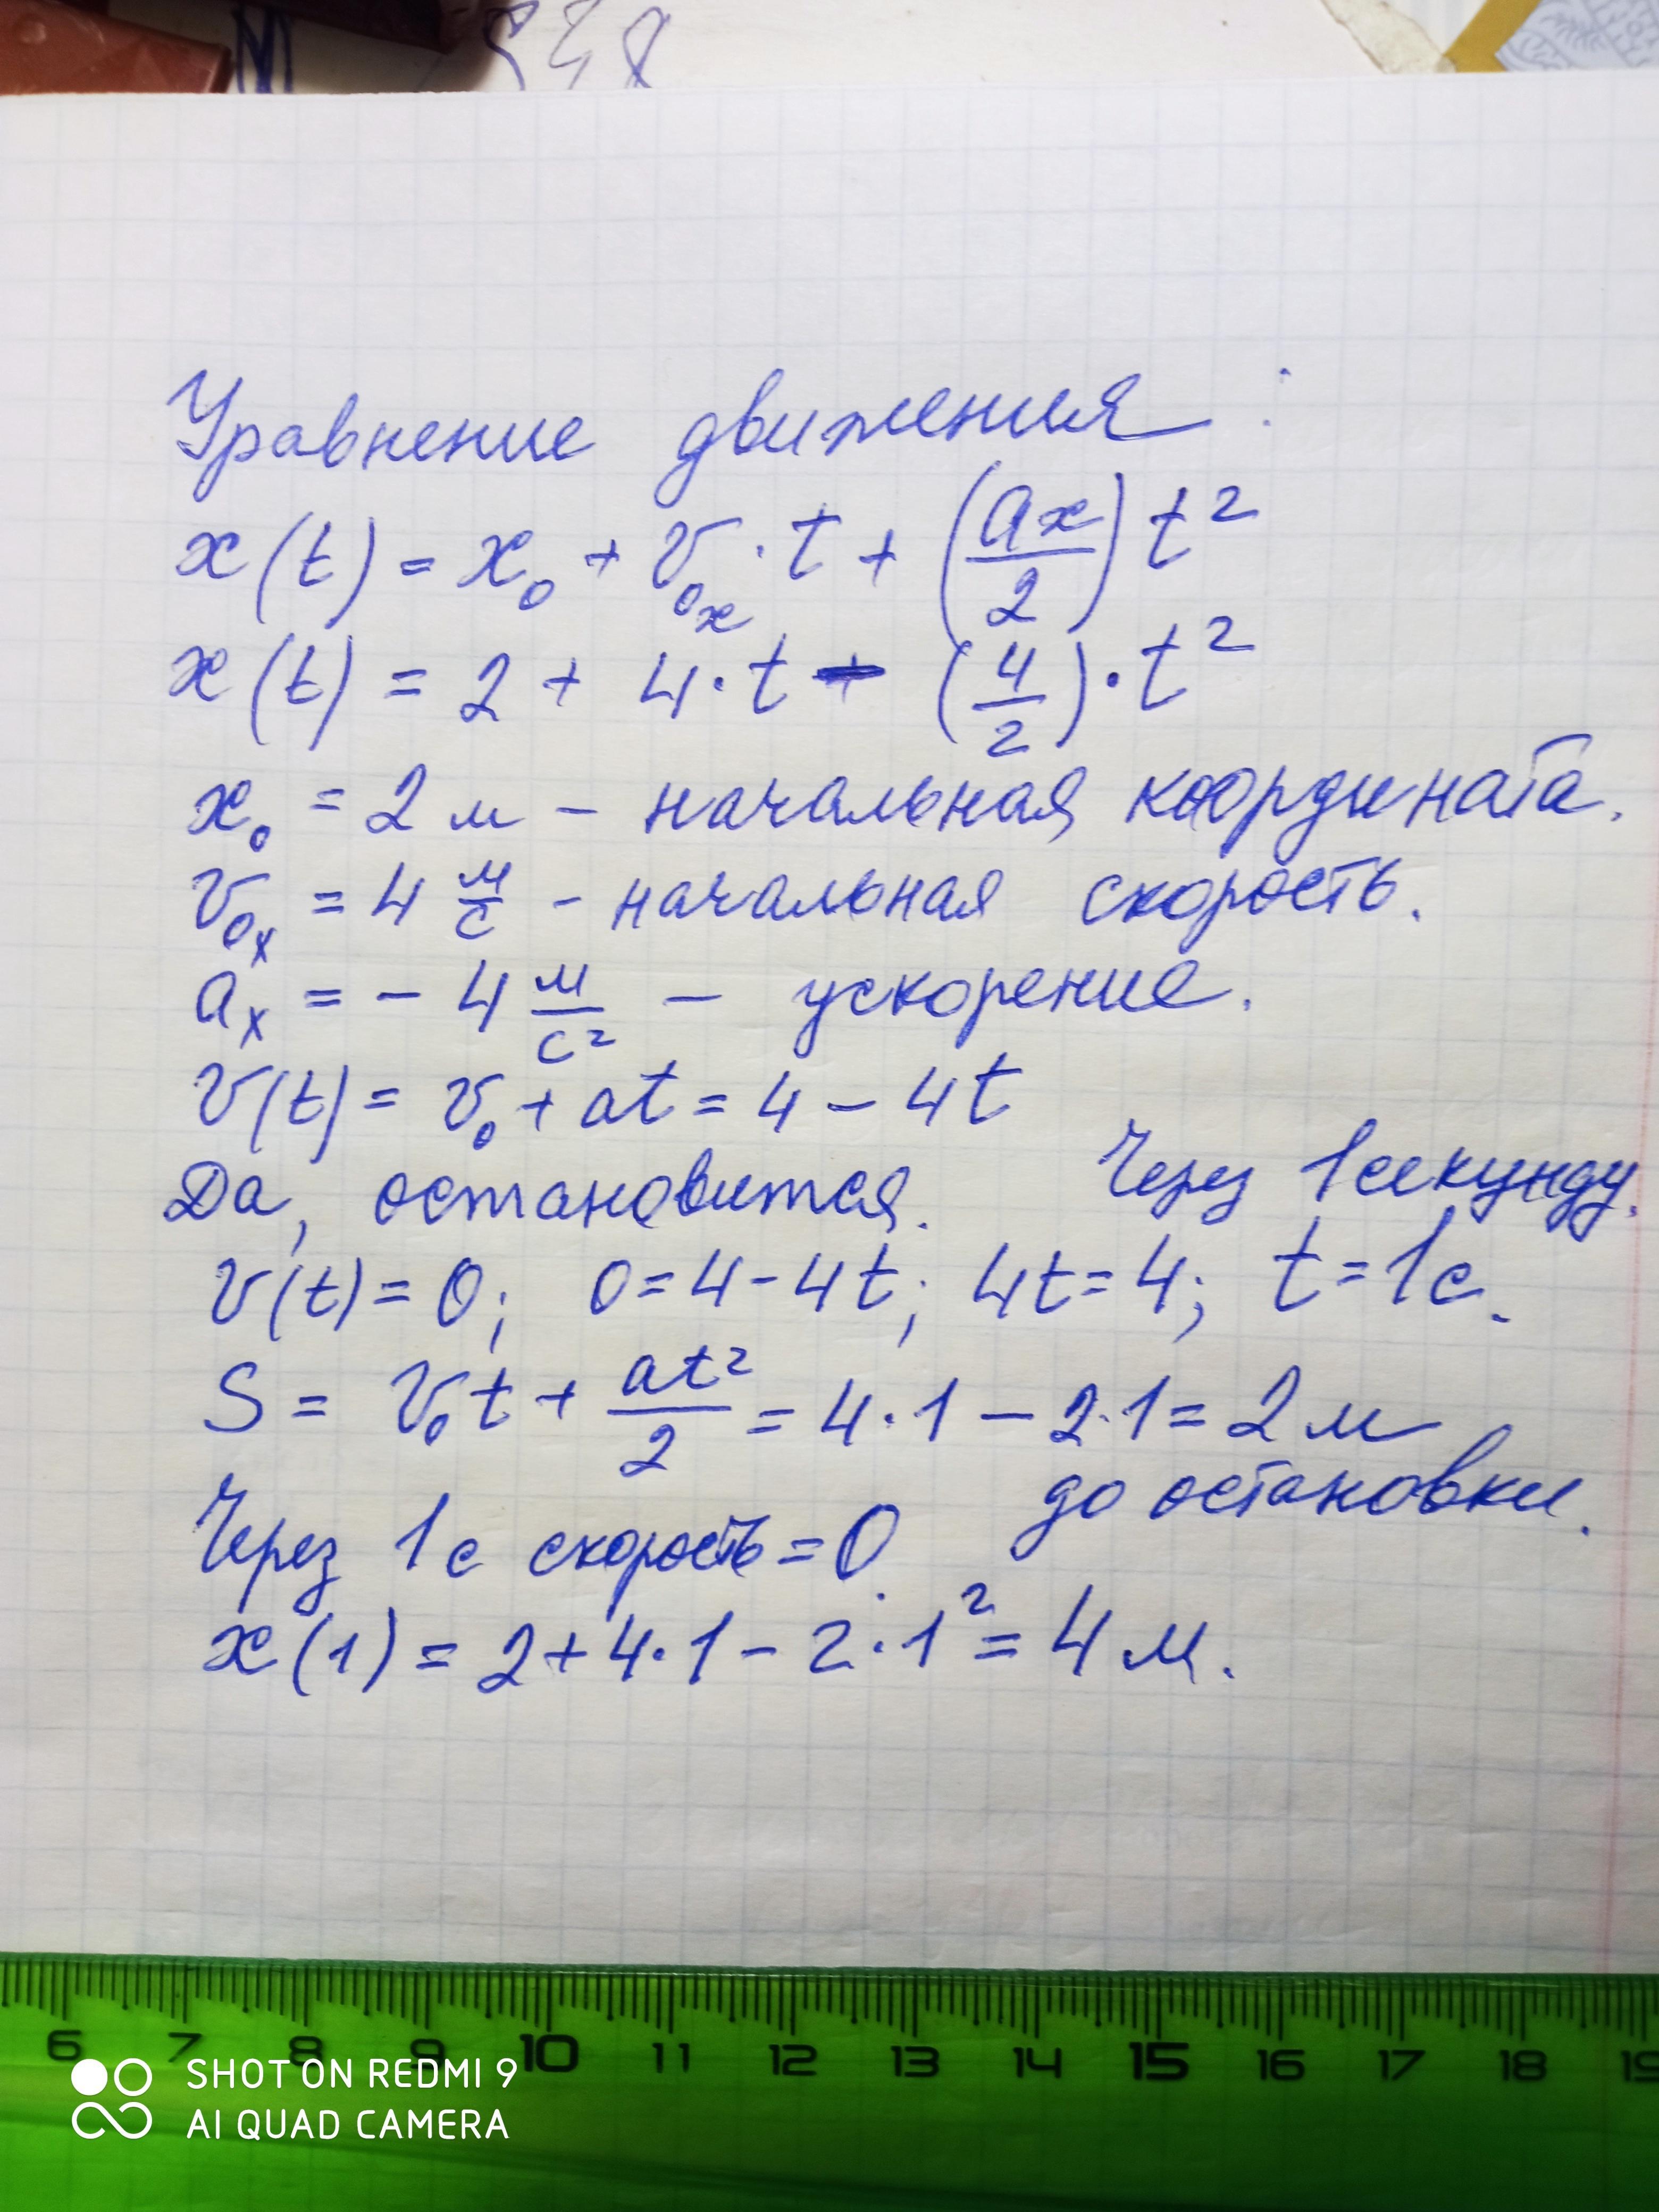 Уравнение движения:
x(t) = x₀ + v₀ₓ · t + (aₓ/2) t²
x(t) = 2 + 4 · t - (4/2) · t²
x₀ = 2 м - начальная координата.
v₀ₓ = 4 м/с - начальная скорость.
aₓ = - 4 м/с² - ускорение.
v(t) = v₀ + at = 4 - 4t
Да, остановится. Через 1 секунду.
v(t) = 0; 0 = 4 - 4t; 4t = 4; t = 1 с.
S = v₀t + at²/2 = 4 · 1 - 2 · 1 = 2 м
до остановки.
Через 1 с скорость = 0.
x(1) = 2 + 4 · 1 - 2 · 1² = 4 м.
6 7 8 9 10 11 12 13 14 15 16 17 18 19
SHOT ON REDMI 9
AI QUAD CAMERA